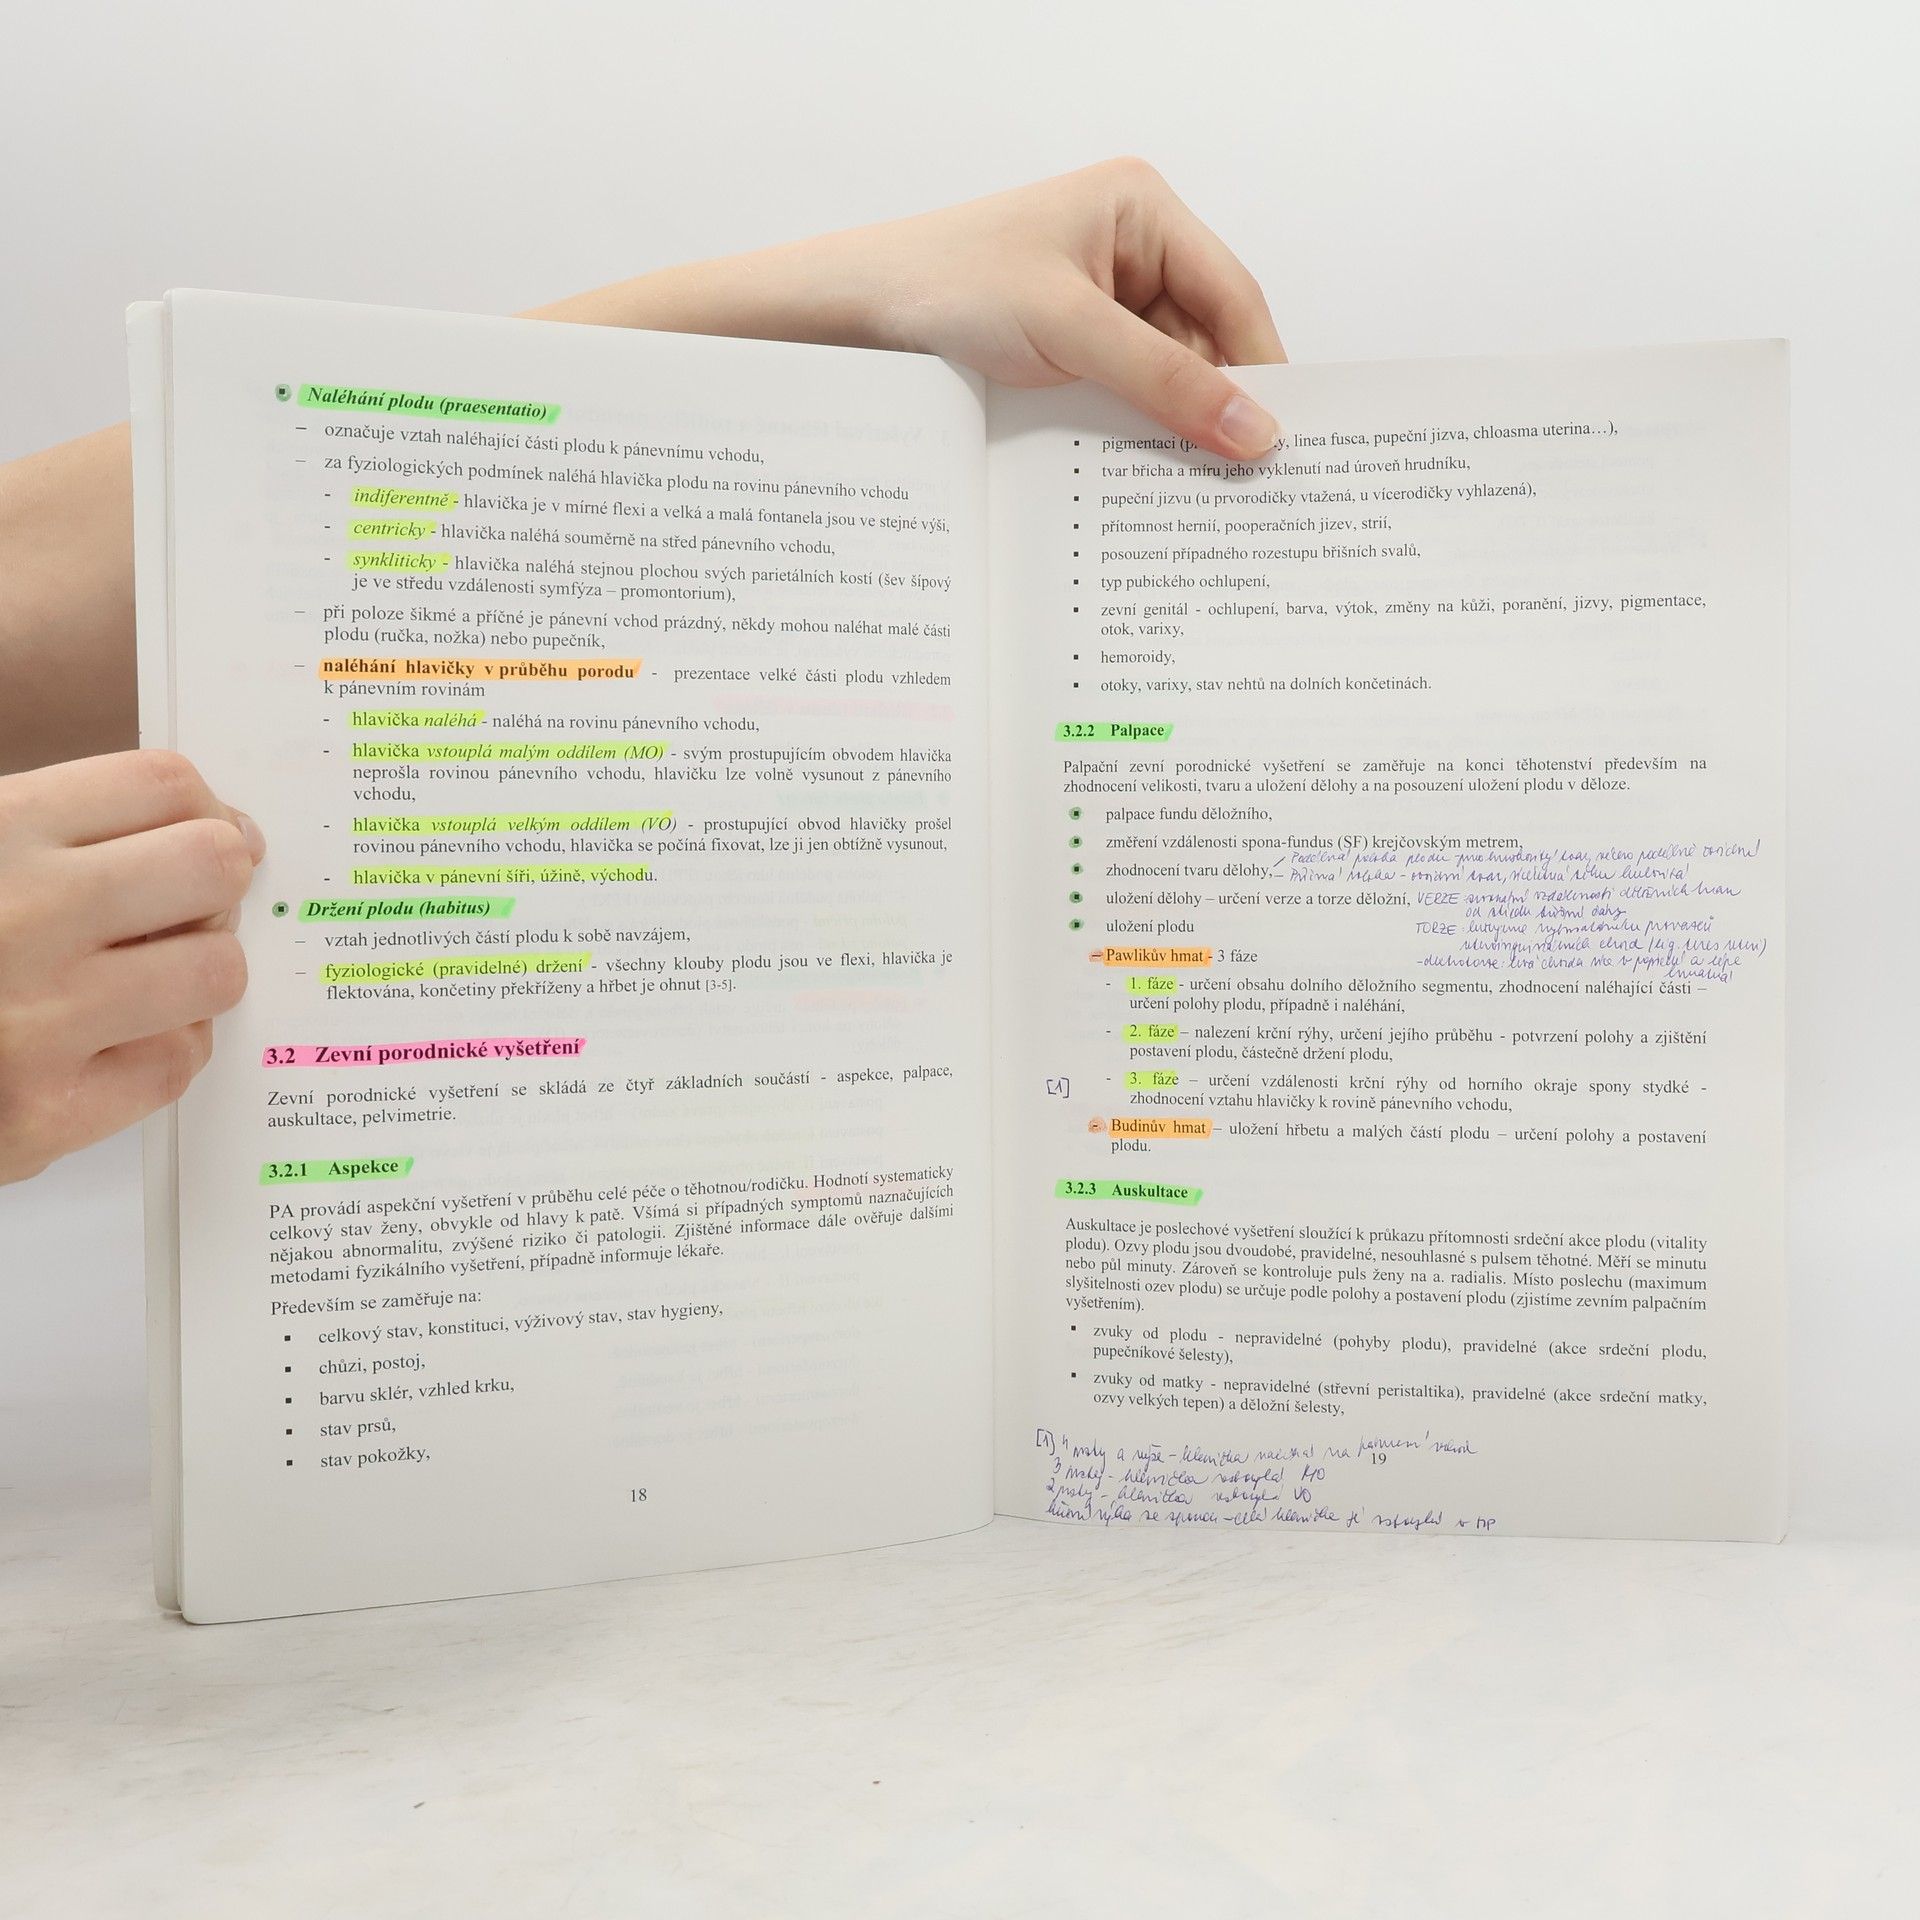 Naléhání plodu (praesentatio)
– označuje vztah naléhající části plodu k pánevnímu vchodu,
– za fyziologických podmínek naléhá hlavička plodu na rovinu pánevního vchodu
- indiferentně - hlavička je v mírné flexi a velká a malá fontanela jsou ve stejné výši,
- centricky - hlavička naléhá souměrně na střed pánevního vchodu,
- synkliticky - hlavička naléhá stejnou plochou svých parietálních kostí (šev šípový
je ve středu vzdálenosti symfýza – promontorium),
– při poloze šikmé a příčné je pánevní vchod prázdný, někdy mohou naléhat malé části
plodu (ručka, nožka) nebo pupečník,
– naléhání hlavičky v průběhu porodu - prezentace velké části plodu vzhledem
k pánevním rovinám
- hlavička naléhá - naléhá na rovinu pánevního vchodu,
- hlavička vstouplá malým oddílem (MO) - svým prostupujícím obvodem hlavička
neprošla rovinou pánevního vchodu, hlavičku lze volně vysunout z pánevního
vchodu,
- hlavička vstouplá velkým oddílem (VO) - prostupující obvod hlavičky prošel
rovinou pánevního vchodu, hlavička se počíná fixovat, lze ji jen obtížně vysunout,
- hlavička v pánevní šíři, úžině, východu.
Držení plodu (habitus)
– vztah jednotlivých částí plodu k sobě navzájem,
– fyziologické (pravidelné) držení - všechny klouby plodu jsou ve flexi, hlavička je
flektována, končetiny překříženy a hřbet je ohnut [3-5].
3.2 Zevní porodnické vyšetření
Zevní porodnické vyšetření se skládá ze čtyř základních součástí - aspekce, palpace,
auskultace, pelvimetrie.
3.2.1 Aspekce
PA provádí aspekční vyšetření v průběhu celé péče o těhotnou/rodičku. Hodnotí systematicky
celkový stav ženy, obvykle od hlavy k patě. Všímá si případných symptomů naznačujících
nějakou abnormalitu, zvýšené riziko či patologii. Zjištěné informace dále ověřuje dalšími
metodami fyzikálního vyšetření, případně informuje lékaře.
Především se zaměřuje na:
▪ celkový stav, konstituci, výživový stav, stav hygieny,
▪ chůzi, postoj,
▪ barvu sklér, vzhled krku,
▪ stav prsů,
▪ stav pokožky,
18
▪ pigmentaci linea fusca, pupeční jizva, chloasma uterina…),
▪ tvar břicha a míru jeho vyklenutí nad úroveň hrudníku,
▪ pupeční jizvu (u prvorodičky vtažená, u vícerodičky vyhlazená),
▪ přítomnost hernií, pooperačních jizev, strií,
▪ posouzení případného rozestupu břišních svalů,
▪ typ pubického ochlupení,
▪ zevní genitál - ochlupení, barva, výtok, změny na kůži, poranění, jizvy, pigmentace,
otok, varixy,
▪ hemoroidy,
▪ otoky, varixy, stav nehtů na dolních končetinách.
3.2.2 Palpace
Palpační zevní porodnické vyšetření se zaměřuje na konci těhotenství především na
zhodnocení velikosti, tvaru a uložení dělohy a na posouzení uložení plodu v děloze.
▪ palpace fundu děložního,
▪ změření vzdálenosti spona-fundus (SF) krejčovským metrem,
Podélná poloha plodu
▪ zhodnocení tvaru dělohy, – Příčná poloha
▪ uložení dělohy – určení verze a torze děložní, VERZE vzdálenosti děložních hran
od středu
▪ uložení plodu TORZE
- Pawlikův hmat - 3 fáze
- 1. fáze - určení obsahu dolního děložního segmentu, zhodnocení naléhající části –
určení polohy plodu, případně i naléhání,
- 2. fáze – nalezení krční rýhy, určení jejího průběhu - potvrzení polohy a zjištění
postavení plodu, částečně držení plodu,
[1] - 3. fáze – určení vzdálenosti krční rýhy od horního okraje spony stydké -
zhodnocení vztahu hlavičky k rovině pánevního vchodu,
- Budinův hmat – uložení hřbetu a malých částí plodu – určení polohy a postavení
plodu.
3.2.3 Auskultace
Auskultace je poslechové vyšetření sloužící k průkazu přítomnosti srdeční akce plodu (vitality
plodu). Ozvy plodu jsou dvoudobé, pravidelné, nesouhlasné s pulsem těhotné. Měří se minutu
nebo půl minuty. Zároveň se kontroluje puls ženy na a. radialis. Místo poslechu (maximum
slyšitelnosti ozev plodu) se určuje podle polohy a postavení plodu (zjistíme zevním palpačním
vyšetřením).
▪ zvuky od plodu - nepravidelné (pohyby plodu), pravidelné (akce srdeční plodu,
pupečníkové šelesty),
▪ zvuky od matky - nepravidelné (střevní peristaltika), pravidelné (akce srdeční matky,
ozvy velkých tepen) a děložní šelesty,
[1] 4 prsty a výše – hlavička na vchod
19
3 prsty – hlavička vstouplá MO
2 prsty – hlavička vstouplá VO
krční rýha – celá hlavička je vstouplá v